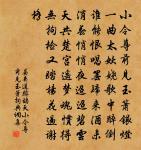 小令尊前見玉簫銀燈
一曲太妖嬈歌中醉倒
誰能恨唱罷歸來酒未
消春悄悄夜迢迢碧雲
天共楚宮遙夢魂慣得
無拘檢又踏楊花過謝
橋
晏幾道鷓鴣天小令尊
前見玉簫